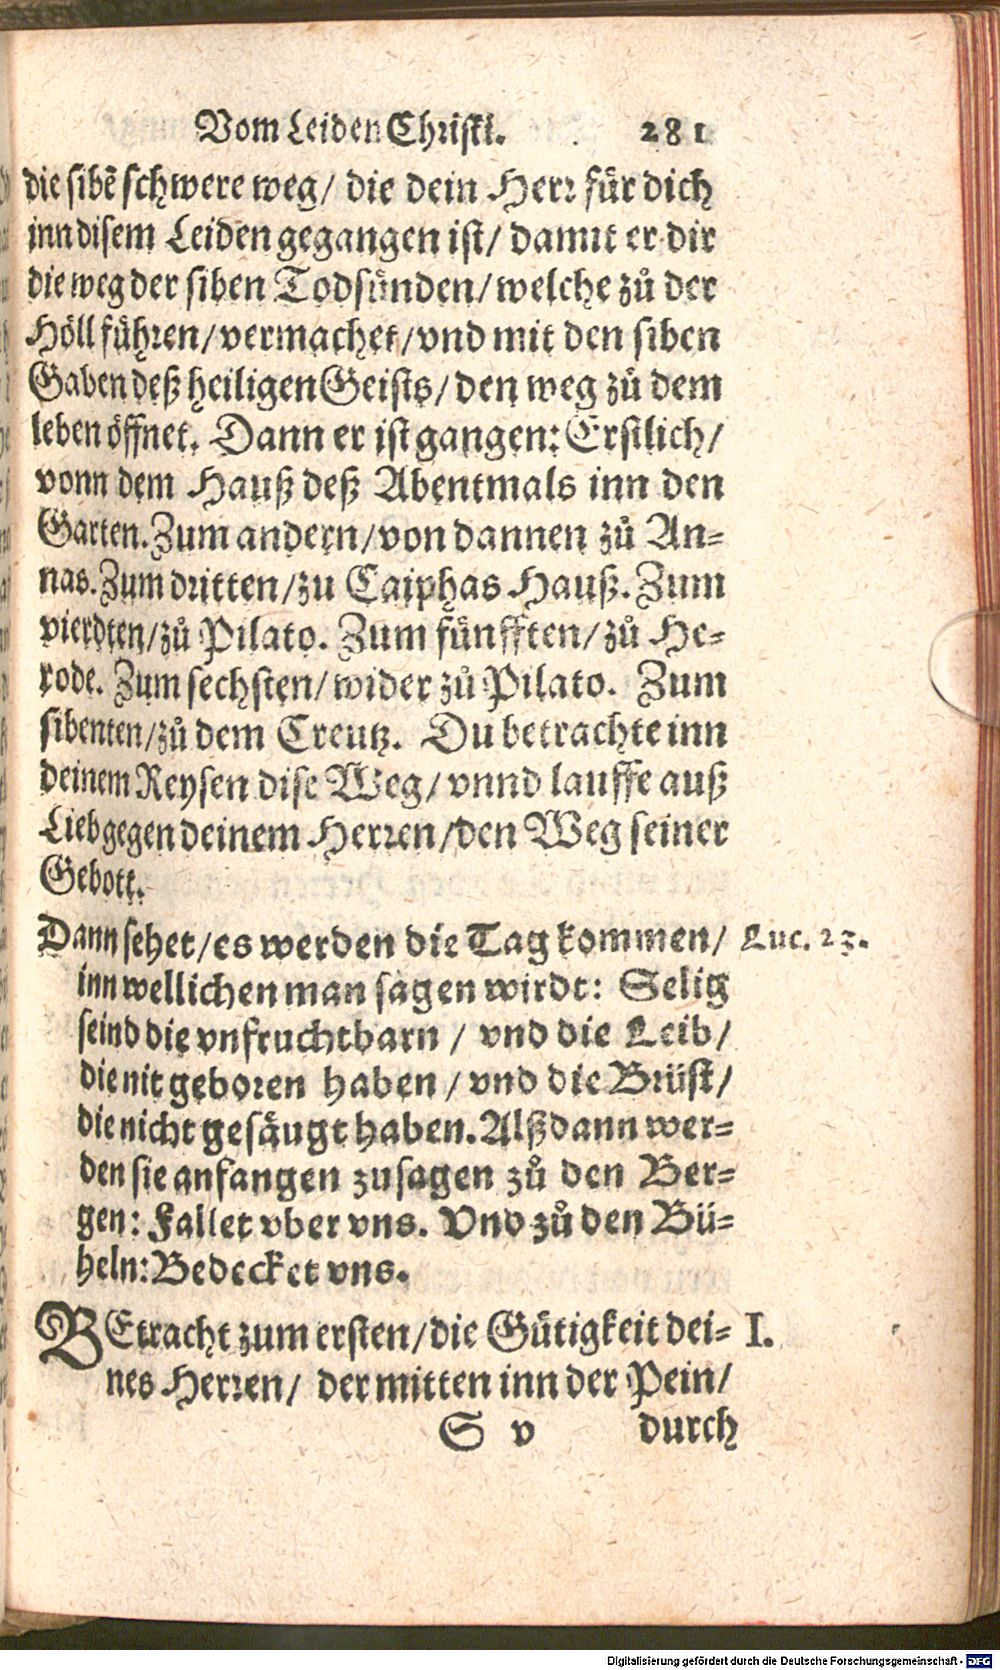 Vom Leiden Christi. 281
die sibẽ schwere weg/ die dein Herr für dich
inn disem Leiden gegangen ist/ damit er dir
die weg der siben Todsünden/ welche zů der
Höll führen/ vermachet/ vnd mit den siben
Gaben deß heiligen Geists/ den weg zů dem
leben öffnet. Dann er ist gangen: Erstlich/
vonn dem Hauß deß Abentmals inn den
Garten. Zum andern/ von dannen zů An-
nas. Zum dritten/ zu Caiphas Hauß. Zum
vierdten/ zů Pilato. Zum fünfften/ zů He-
rode. Zum sechsten/ wider zů Pilato. Zum
sibenten/ zů dem Creutz. Du betrachte inn
deinem Reysen dise Weg/ vnnd lauffe auß
Lieb gegen deinem Herren/ den Weg seiner
Gebott.
Dann sehet/ es werden die Tag kommen/ Luc. 23.
inn wellichen man sagen wirdt: Selig
seind die vnfruchtbarn/ vnd die Leib/
die nit geboren haben/ vnd die Brüst/
die nicht gesäugt haben. Alßdann wer-
den sie anfangen zusagen zů den Ber-
gen: Fallet vber vns. Vnd zů den Bü-
heln: Bedecket vns.
BEtracht zum ersten/ die Gütigkeit dei- I.
nes Herren/ der mitten inn der Pein/
S v durch
Digitalisierung gefördert durch die Deutsche Forschungsgemeinschaft - DFG